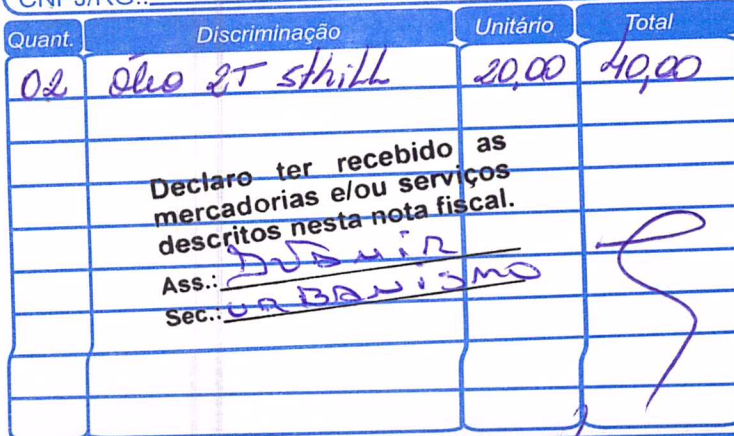 CNPJ/RG.:
Quant. Discriminação Unitário Total
02 óleo 2T sthill 20,00 40,00
Declaro ter recebido as
mercadorias e/ou serviços
descritos nesta nota fiscal.
Ass.:
Sec.: URBANISMO